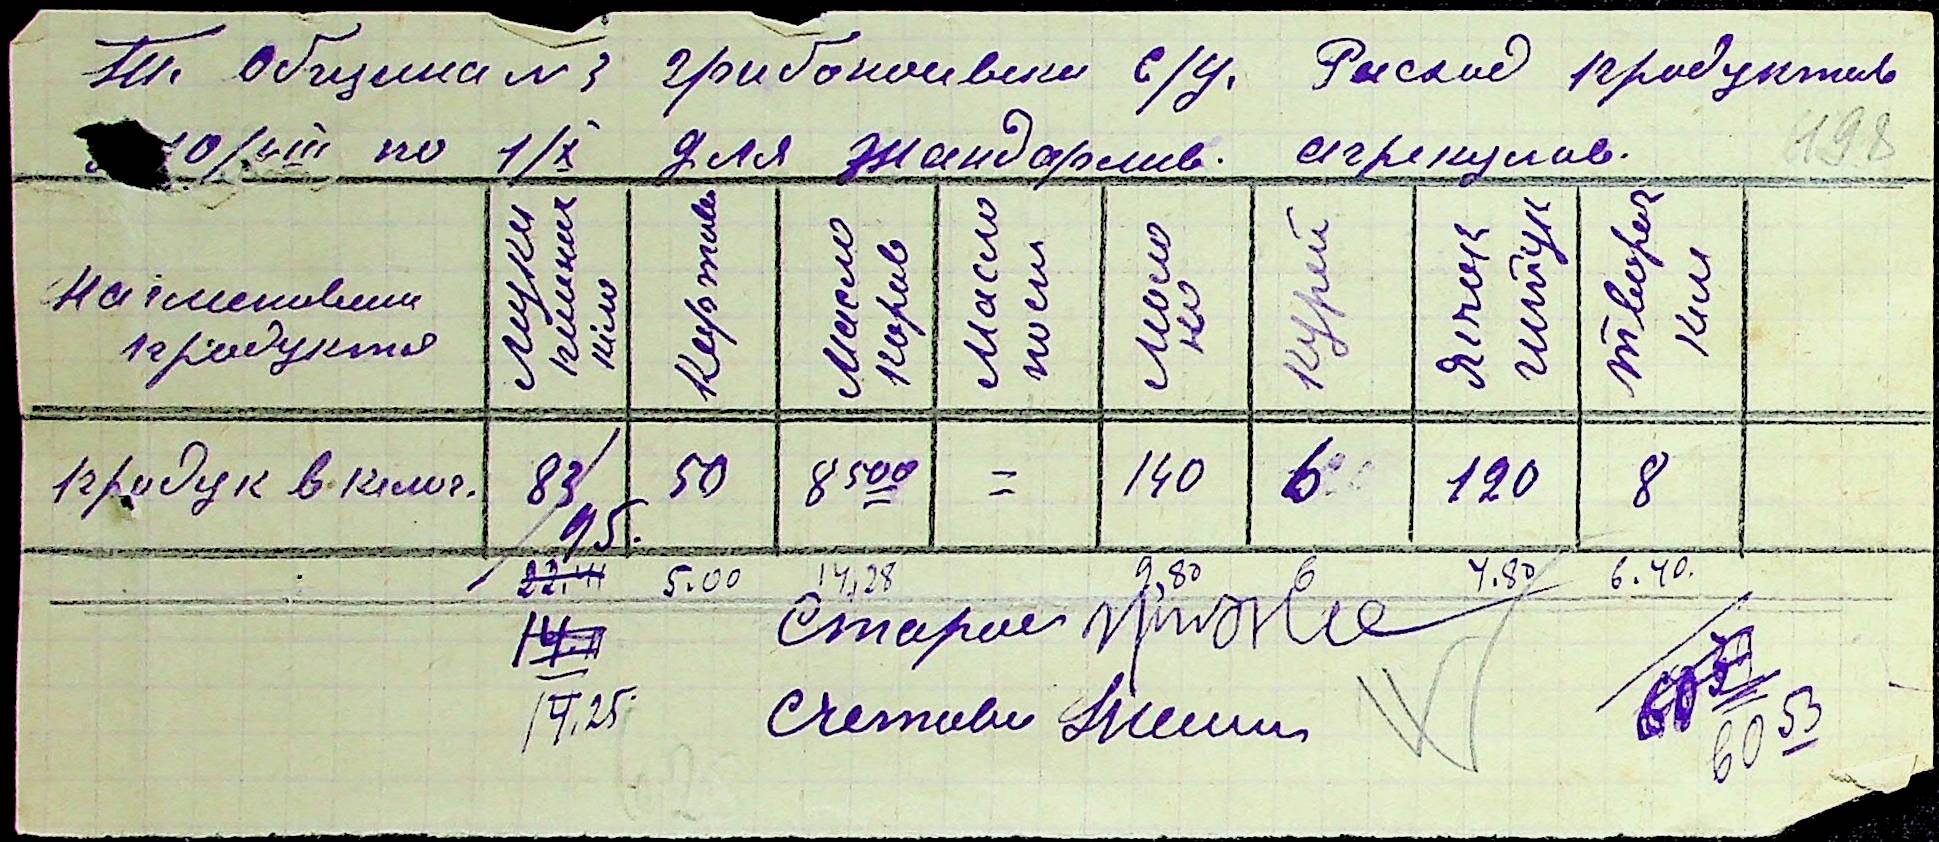 Община №3 Грибоносивки с/у. Расход продуктов
10/VIII по 1/X для жандармів. агрекулов.
198
Наименовании продукта
Муки пшених кіло
Картов
Масло коров
Масло посн
Моло ко
Курей
Яичок штук
Творог кил
продук в килог.
83/95. 50 8500 = 140 6 120 8
22.41 5.00 14,28 9,80 6 4.80 6.40.
14.11 Старос
14,25 Счетови
60 53